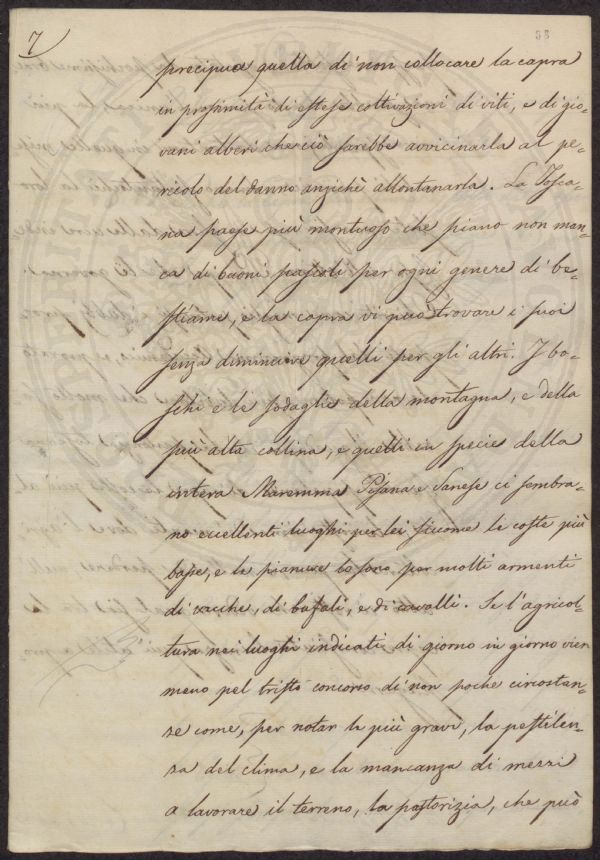 7
88
precipua quella di non collocare la capra
in prossimità di estese coltivazioni di viti, e di gio-
vani alberi che ciò sarebbe avvicinarla al pe-
ricolo del danno anzichè allontanarla. La Tosca-
na paese più montuoso che piano non man-
ca di buoni pascoli per ogni genere di be-
stiame, e la capra vi può trovare i suoi
senza diminuire quelli per gli altri. I bo-
schi e le sodaglie della montagna, e della
più alta collina, e quelli in specie della
intera Maremma Pisana e Sanese ci sembra-
no eccellenti luoghi per lei siccome le coste più
basse, e le pianure lo sono per molti armenti
di vacche, di bufali, e di cavalli. Se l'agricol-
tura nei luoghi indicati di giorno in giorno vien
meno pel tristo concorso di non poche circostan-
ze come, per notar le più gravi, la pestilen-
za del clima, e la mancanza di mezzi
a lavorare il terreno, la pastorizia, che può